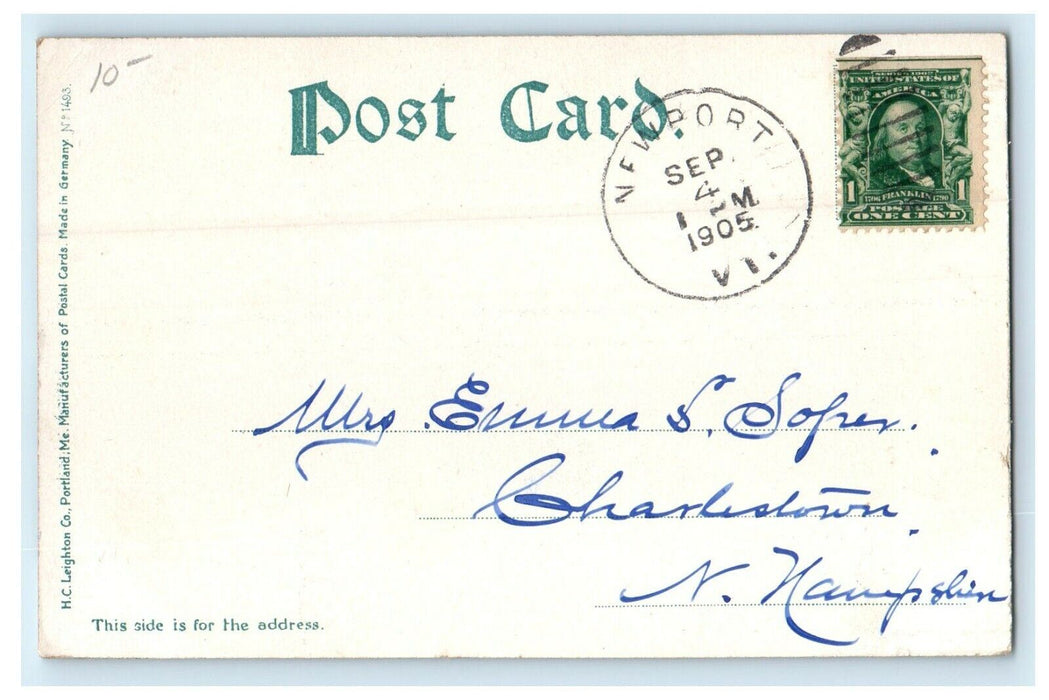 10-
Post Card.
NEWPORT
SEP.
4
1905
VT.
SERIES 1902
UNITED STATES OF
AMERICA
1 1706 FRANKLIN 1790 1
POSTAGE
ONE CENT
Mrs. Emma S. Soper.
Charlestown,
N. Hampshire
This side is for the address.
H.C. Leighton Co., Portland, Me. Manufacturers of Postal Cards. Made in Germany. Nº 1493.